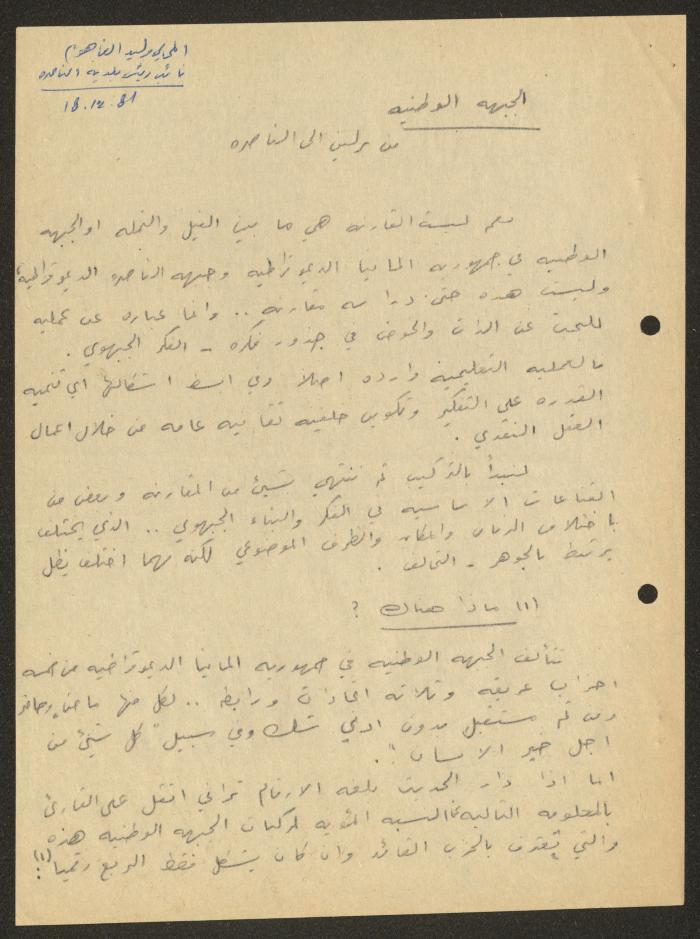 المحامي وليد الفاهوم
نائب رئيس بلدية الناصره
18.12.81
الجبهه الوطنيه
من برلين الى الناصره
نعم ليست المقارنه هي ما بين الفيل والنمله او الجبهه
الوطنيه في جمهورية المانيا الديموقراطيه وجبهه الناصره الديموقراطية،
وليست هذه حتى دراسه مقارنه .. وانما عباره عن عمليه
للبحث عن الذات والخوض في جذور فكره - الفكر الجبهوي .
فالعمليه التعليمية وارده اصلا وفي اسمى اشكالها اي تنميه
القدره على التفكير وتكوين خلفيه ثقافيه عامه من خلال اعمال
العقل النقدي .
لنبدأ بالتركيب ثم ننتهي بشيئ من المقارنه وبعض من
القناعات الاساسيه في الفكر والبناء الجبهوي .. الذي يختلف
باختلاف الزمان والمكان والظرف الموضوعي لكنه مهما اختلف يظل
يرتبط بالجوهر - التحالف .
(١) ماذا هناك ؟
تتألف الجبهه الوطنيه في جمهورية المانيا الديموقراطيه من خمسه
احزاب عريقه وثلاثه اتحادات ورابطه .. لكل منها ماض وحاضر
ومن ثم مستقبل بدون ادنى شك وفي سبيل "كل شيئ من
اجل خير الانسان ".
اما اذا دار الحديث بلغه الارقام تراني اثقل على القارئ
بالمعلومه التاليه عن النسبه المئويه لمركبات الجبهه الوطنيه هذه
والتي تتعدد بالحزب القائد وان كان يشكل فقط الربع رقميا (!!)